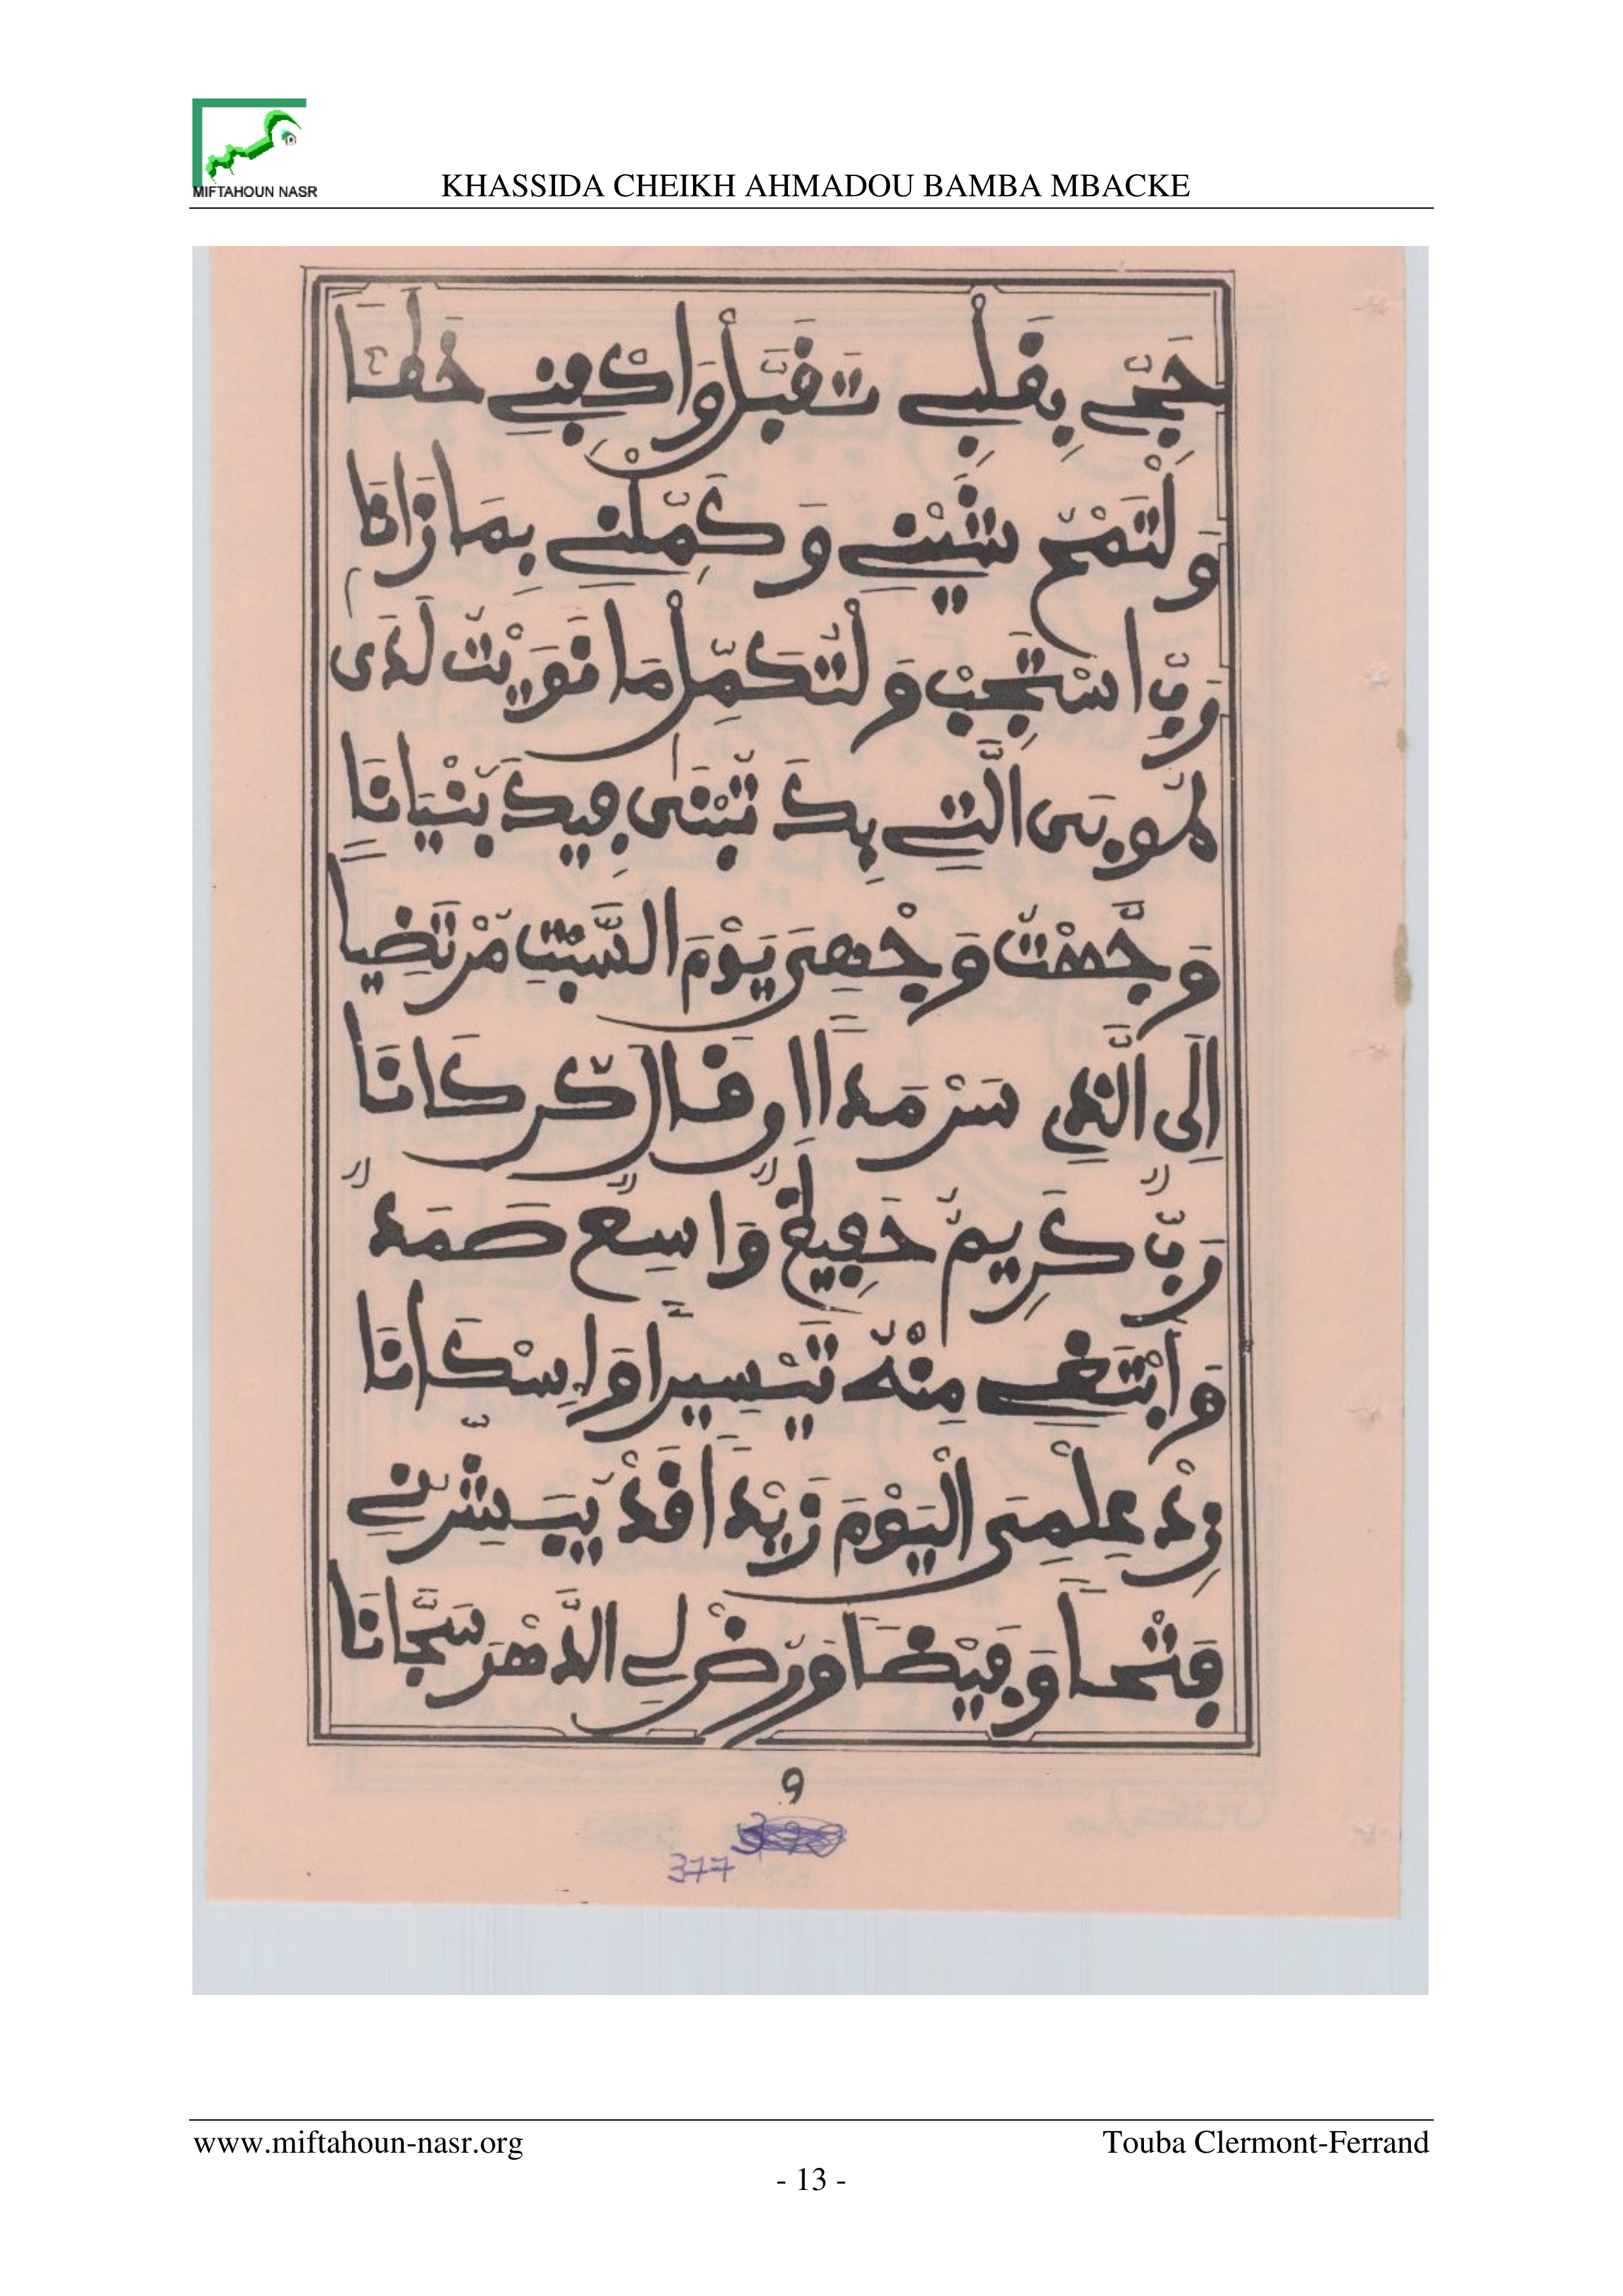 MIFTAHOUN NASR
KHASSIDA CHEIKH AHMADOU BAMBA MBACKE
حَجِّي بِقَلْبِي تَقَبَّلْ وَاكْفِنِي خَطَـَٔا
وَلْتَمْحُ شَيْنِي وَكَمِّلْنِي بِمَا زَانَا
رَبِّ اسْتَجِبْ وَلْتُكَمِّلْ مَا نَوَيْتُ لَدَى
طُوبَى الَّتِي بِكَ تُبْنَى فِيكَ بُنْيَانَا
وَجَّهْتُ وَجْهِيَ يَوْمَ السَّبْتِ مُرْتَضِيًا
إِلَى الَّذِي سَرْمَدًا
رَبٌّ كَرِيمٌ حَفِيظٌ وَاسِعٌ صَمَدٌ
وَأَبْتَغِي مِنْهُ تَيْسِيرًا وَإِسْكَانَا
زِدْ عِلْمِيَ الْيَوْمَ زَيْدًا قَدْ يُبَشِّرُنِي
فَتْحًا وَفَيْضًا وَرُضْ لِي الدَّهْرَ سَجَّانَا
9
377
www.miftahoun-nasr.org
Touba Clermont-Ferrand
- 13 -